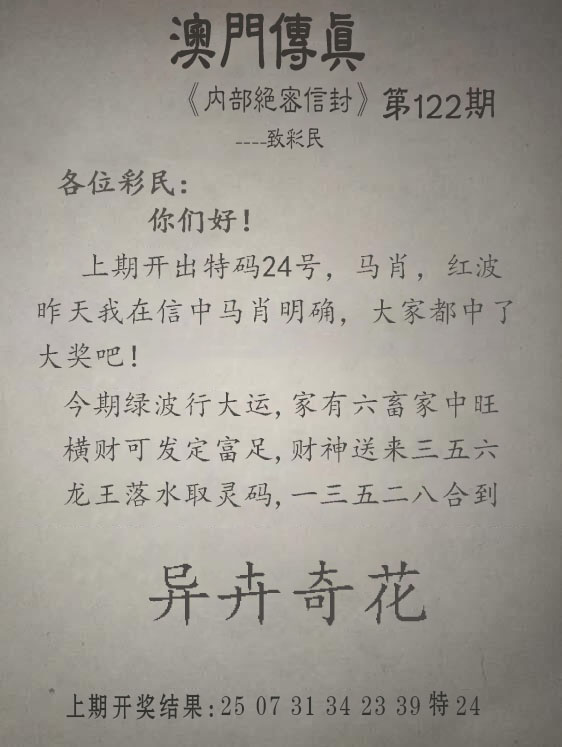 澳門傳眞
《内部絕密信封》第122期
----致彩民
各位彩民：
你们好！
上期开出特码24号，马肖，红波
昨天我在信中马肖明确，大家都中了
大奖吧！
今期绿波行大运,家有六畜家中旺
横财可发定富足,财神送来三五六
龙王落水取灵码,一三五二八合到
异卉奇花
上期开奖结果:25 07 31 34 23 39 特 24